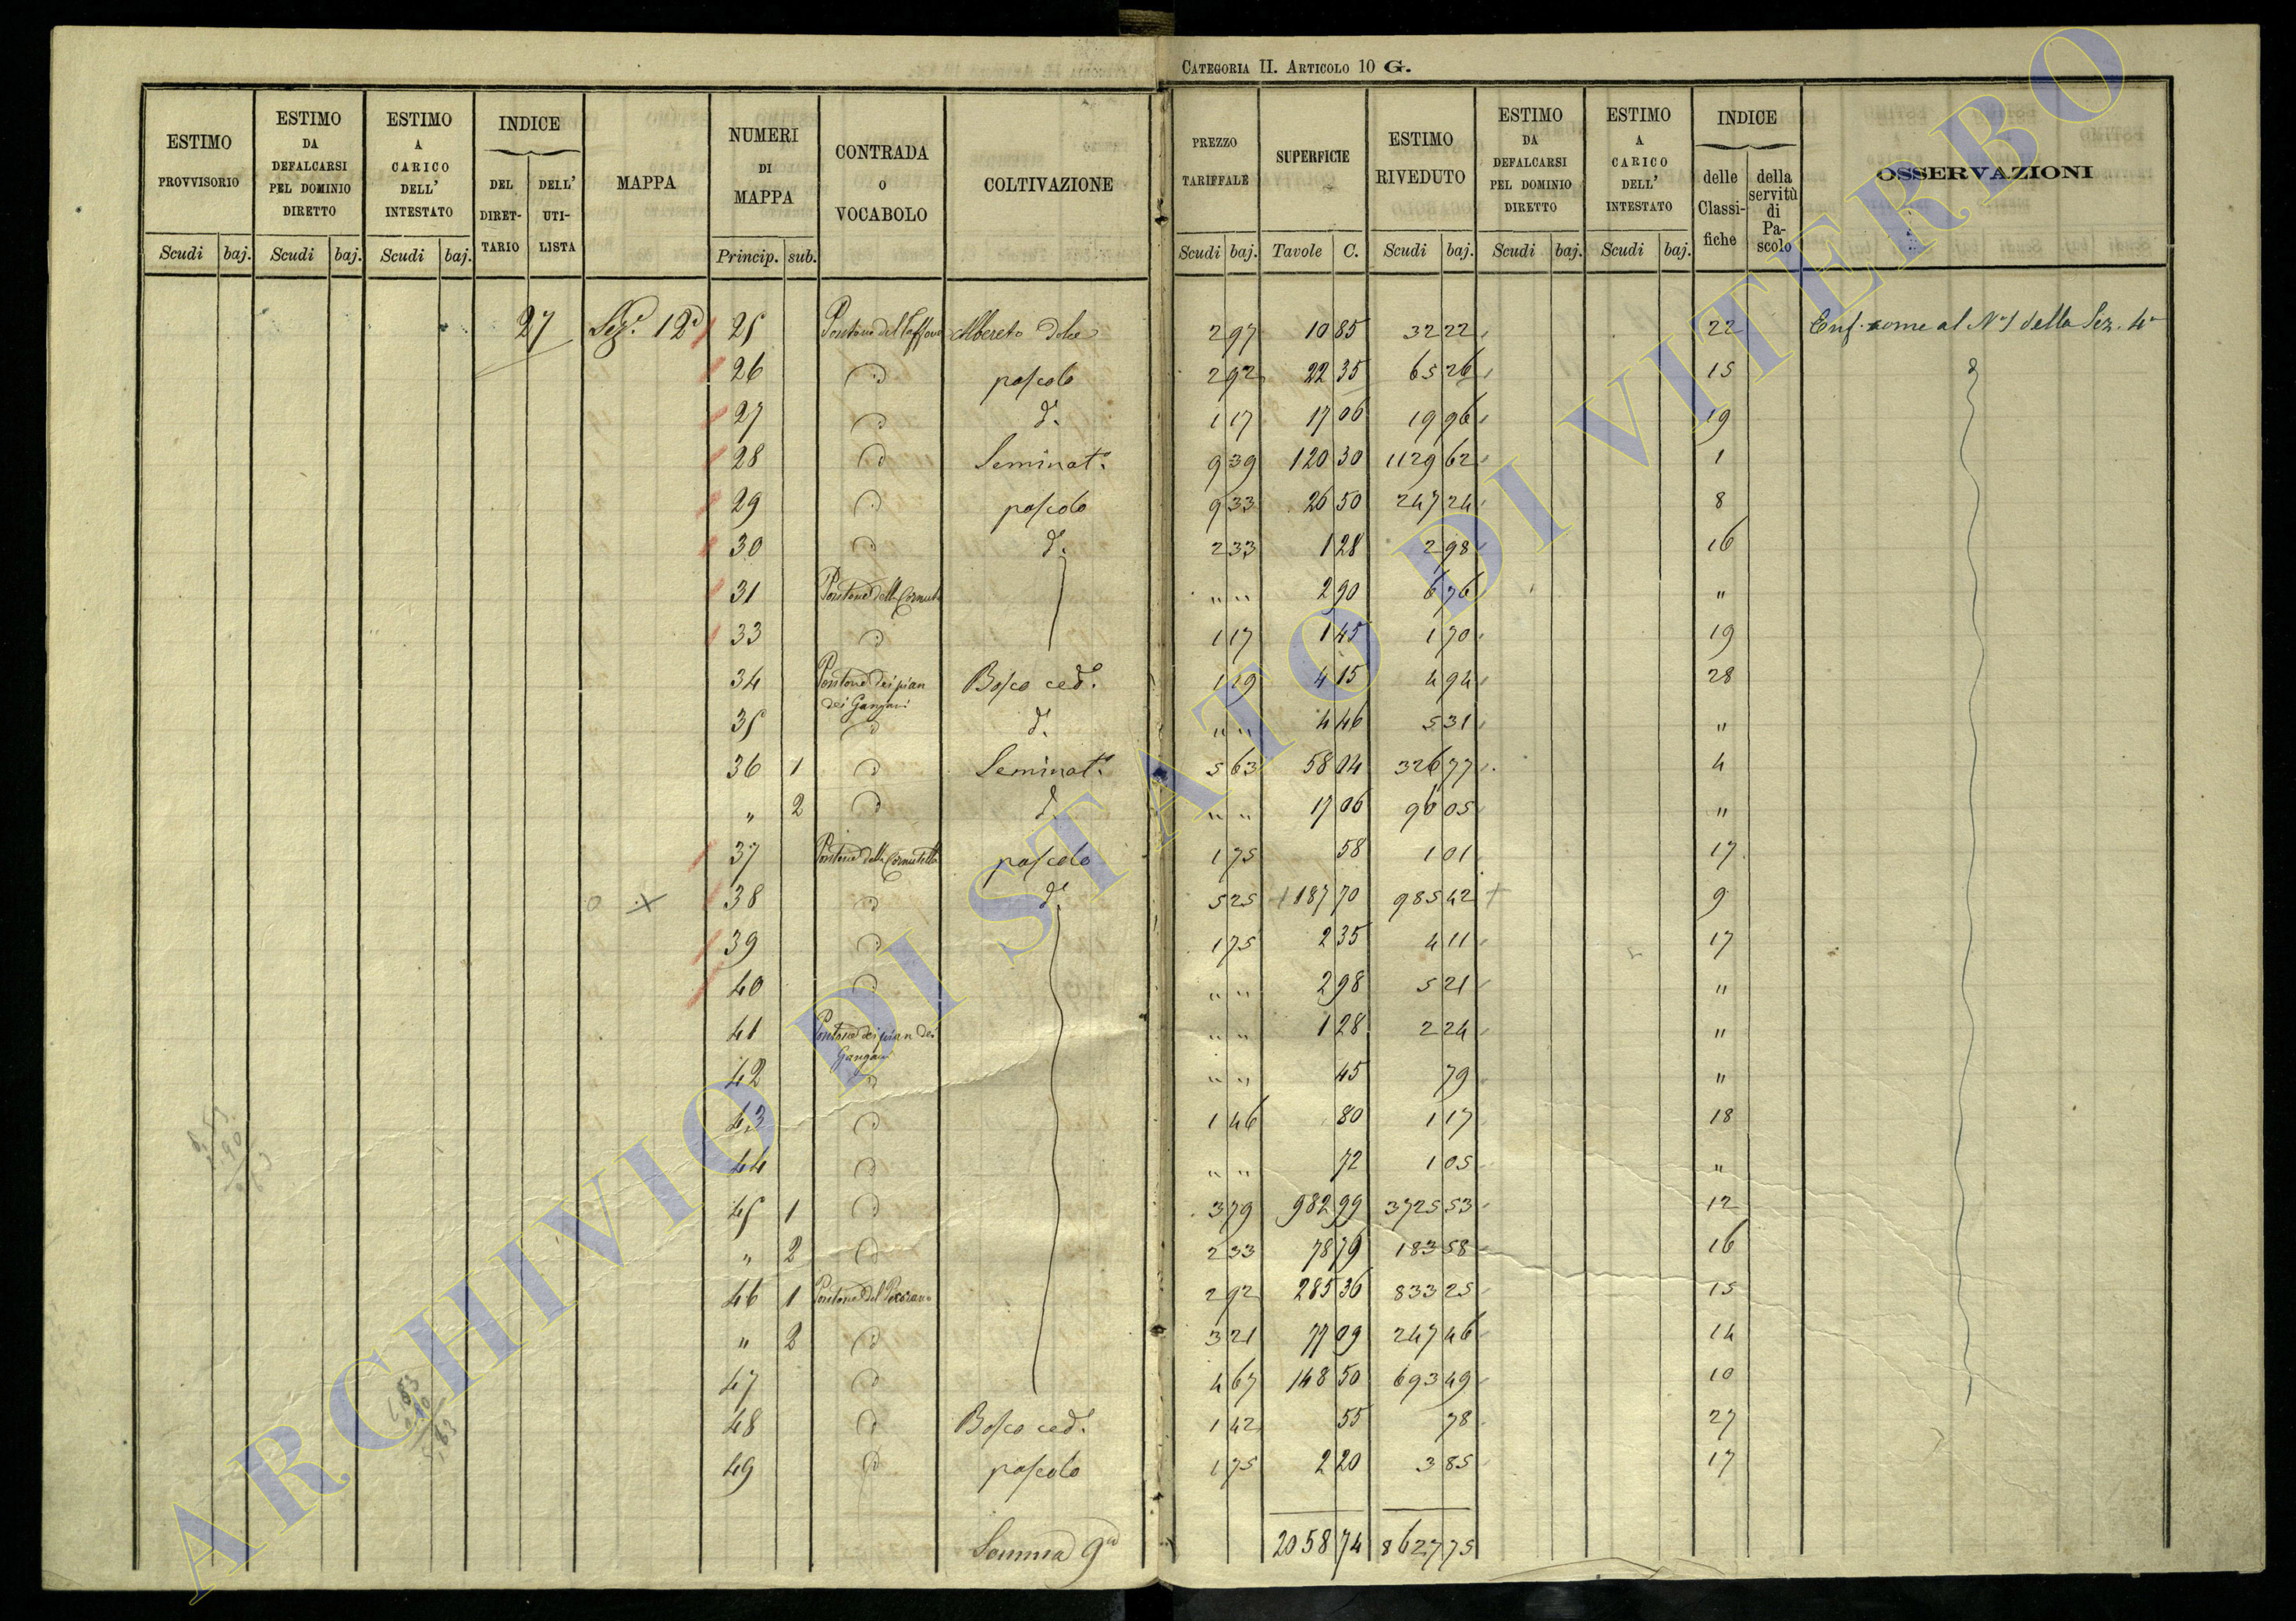 CATEGORIA II. ARTICOLO 10 G.
ESTIMO PROVVISORIO | ESTIMO DA DEFALCARSI PEL DOMINIO DIRETTO | ESTIMO A CARICO DELL' INTESTATO | INDICE DEL DIRET-TARIO | DELL' UTI-LISTA | MAPPA | NUMERI DI MAPPA | CONTRADA O VOCABOLO | COLTIVAZIONE | PREZZO TARIFFALE | SUPERFICIE | ESTIMO RIVEDUTO | ESTIMO DA DEFALCARSI PEL DOMINIO DIRETTO | ESTIMO A CARICO DELL' INTESTATO | INDICE delle Classi-fiche | della servitù di Pa-scolo | OSSERVAZIONI
Scudi baj. Scudi baj. Scudi baj. Princip. sub. Scudi baj. Tavole C. Scudi baj. Scudi baj. Scudi baj.
27 Sez.e 12a 25 Pontone del Caffone Albereto dolce 2 97 10 85 32 22 22 Enf. come al No 1 della Sez. 4a
26 d pascolo 2 92 22 35 65 26 15
27 d do. 1 17 17 06 19 96 19
28 d Seminato. 9 39 120 30 1129 62 1
29 d pascolo 9 33 26 50 247 24 8
30 d do. 2 33 1 28 2 98 16
31 Pontone della " " 2 90 6 76 "
33 d 1 17 1 45 1 70 19
34 Pontone dei pian dei Gangani Bosco ced. 1 19 4 15 4 94 28
35 d do. " " 4 46 5 31 "
36 1 d Seminato. 5 63 58 04 326 77 4
" 2 d do " " 17 06 96 05 "
37 Pontone della Cornutella pascolo 1 75 58 1 01 17
+ 38 d do. 5 25 + 187 70 985 42 + 9
39 d 1 75 2 35 4 11 17
40 d " " 2 98 5 21 "
41 Pontone dei pian dei Gangani " " 1 28 2 24 "
42 d " " 45 79 "
43 d 1 46 80 1 17 18
44 d " " 72 1 05 "
45 1 d 3 79 982 99 3725 53 12
" 2 d 2 33 78 79 183 58 16
46 1 Pontone del 2 92 285 36 833 25 15
" 2 d 3 21 77 09 247 46 14
47 d 4 67 148 50 693 49 10
48 d Bosco ced. 1 42 55 78 27
49 d pascolo 1 75 2 20 3 85 17
Somma 9a 2058 74 8627 75
ARCHIVIO DI STATO DI VITERBO